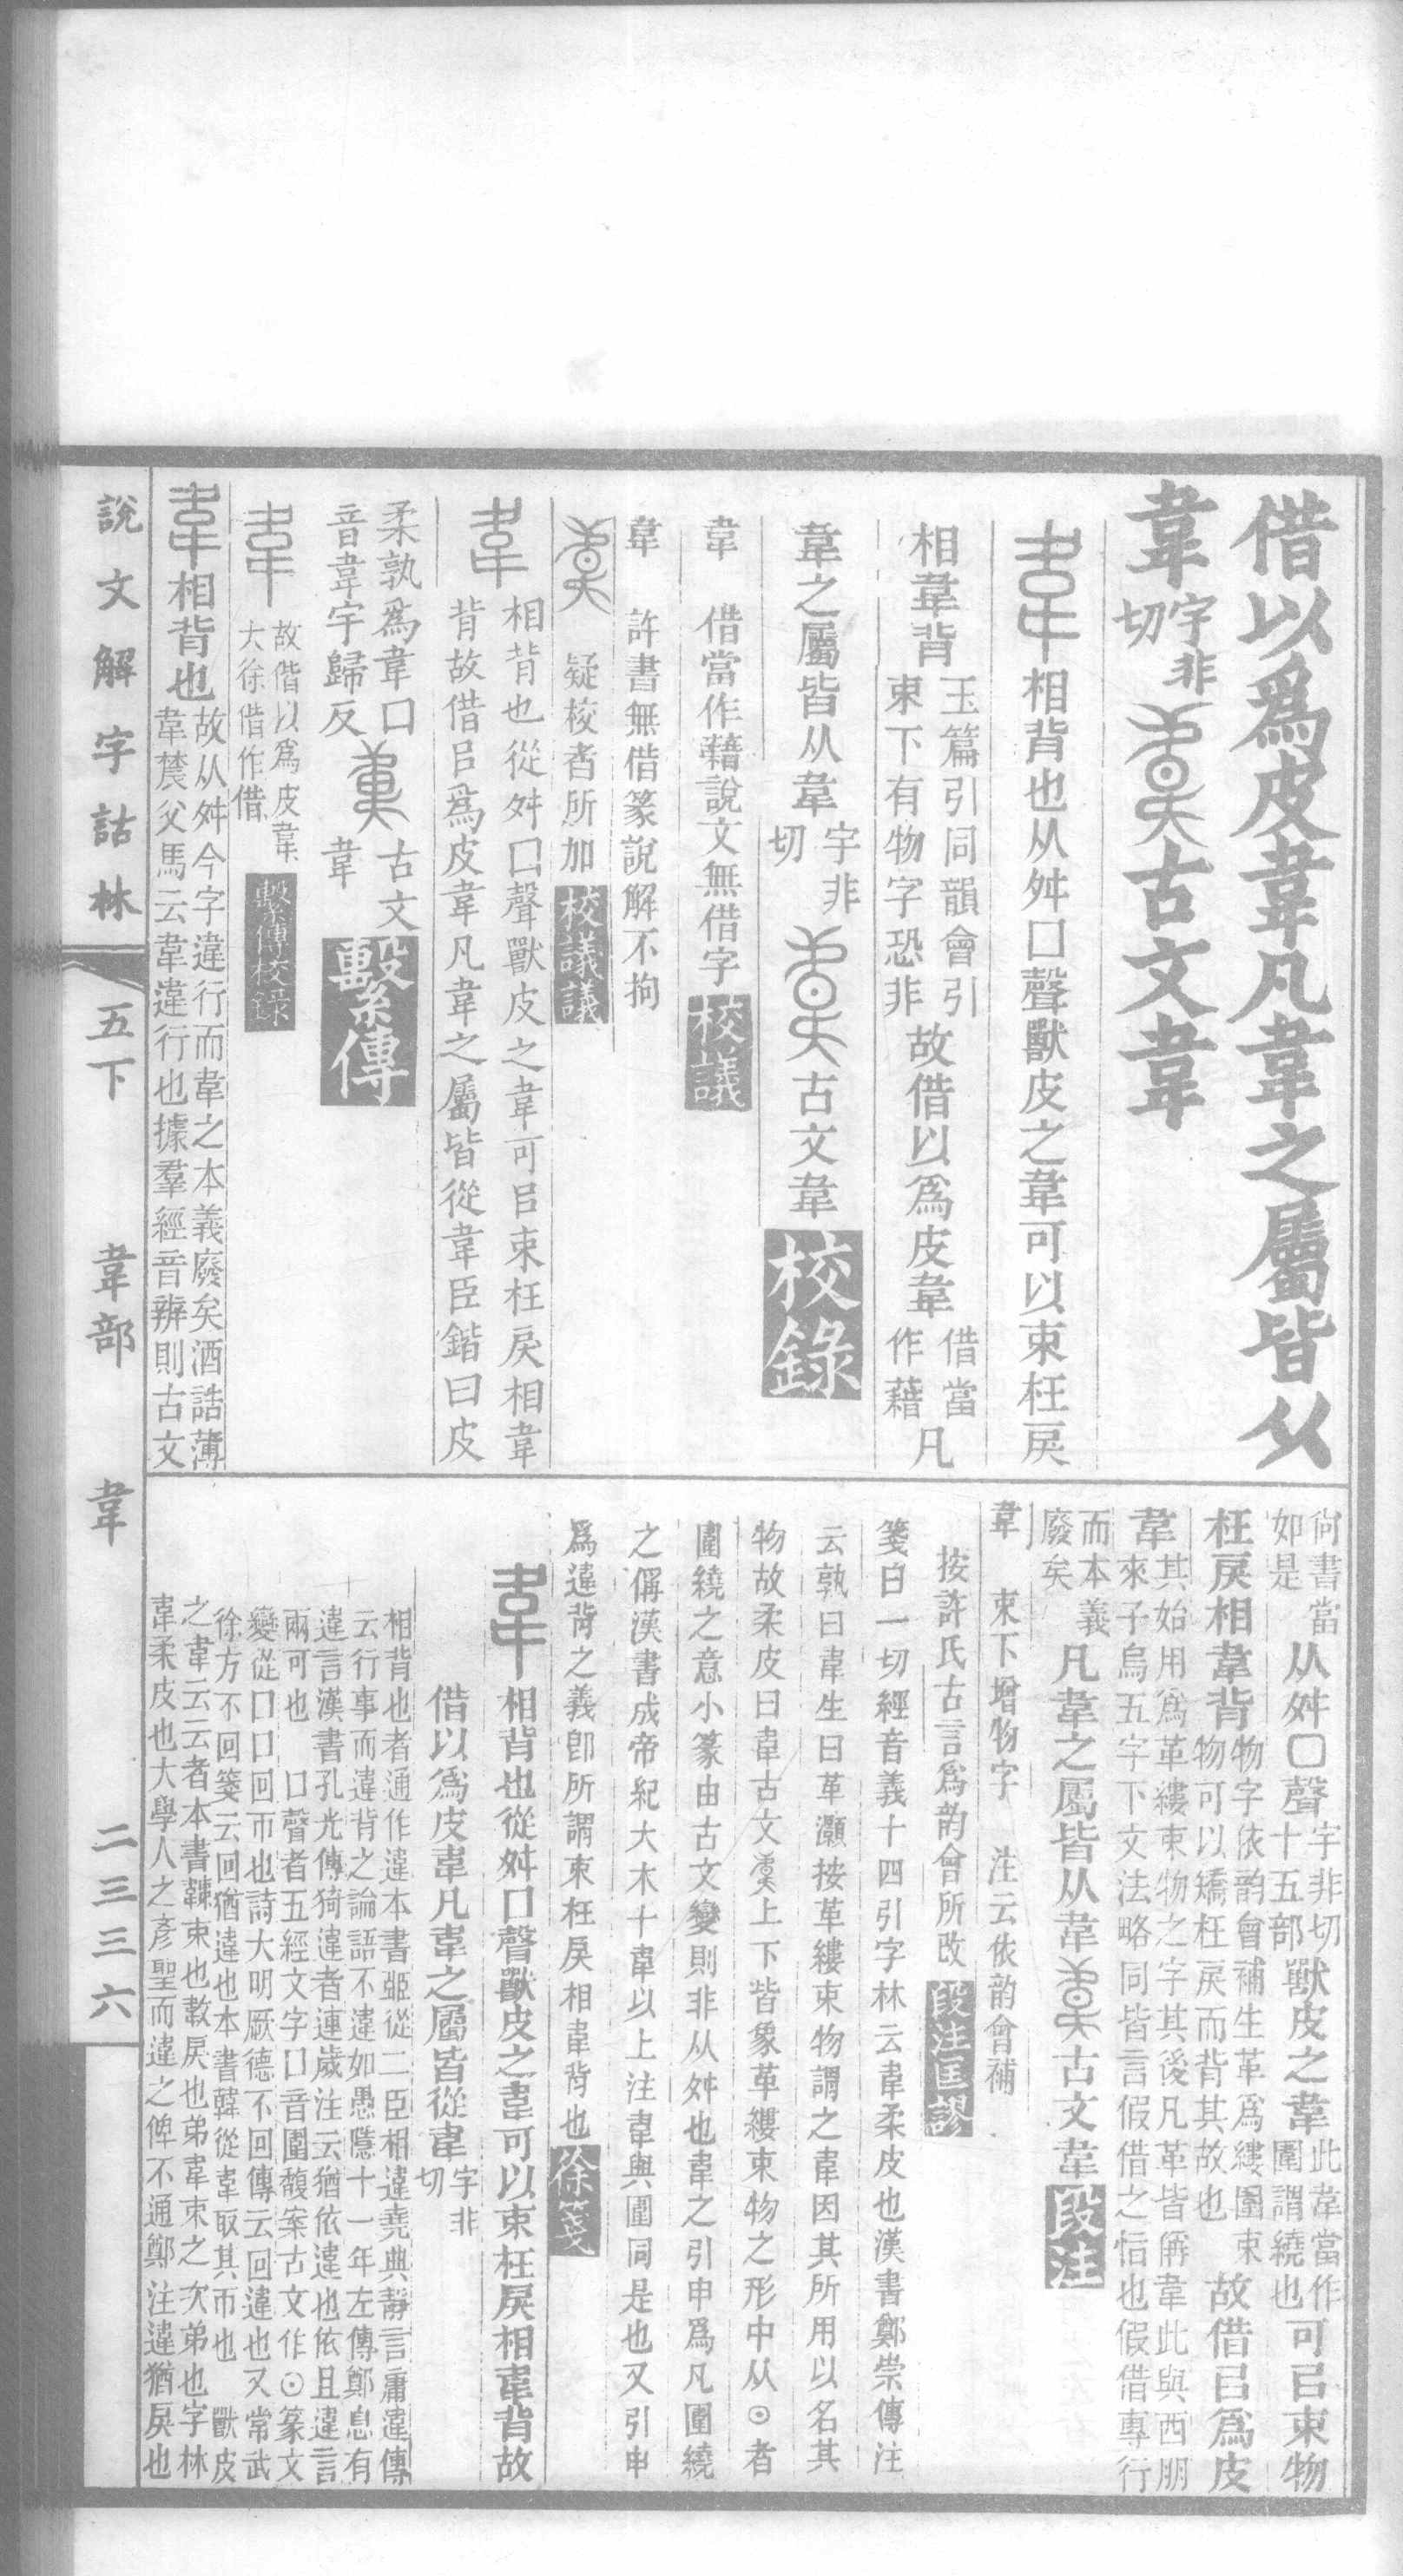 借以爲皮韋凡韋之屬皆从
韋 字非切 古文韋
相背也从舛囗聲獸皮之韋可以束枉戾
相韋背 玉篇引同韻會引束下有物字恐非 故借以爲皮韋 借當作藉 凡
韋之屬皆从韋 字非切 古文韋 校錄
韋 借當作藉說文無借字 校議
韋 許書無借篆說解不拘
疑校者所加 校議議
相背也從舛囗聲獸皮之韋可㠯束枉戾相韋
背故借㠯爲皮韋凡韋之屬皆從韋臣鍇曰皮
柔孰爲韋囗音韋宇歸反 古文韋 繫傳
故偕以爲皮韋大徐偕作借 繫傳校錄
相背也 故从舛今字違行而韋之本義廢矣酒誥薄
韋辳父馬云韋違行也據羣經音辨則古文
尙書當如是 从舛囗聲 宇非切十五部 獸皮之韋 此韋當作圍謂繞也 可㠯束物
枉戾相韋背 物字依韵會補生革爲縷圍束物可以矯枉戾而背其故也 故借㠯爲皮
韋 其始用爲革縷束物之字其後凡革皆偁韋此與西朋
來子烏五字下文法略同皆言假借之恉也假借專行
而本義廢矣 凡韋之屬皆从韋 古文韋 段注
韋 束下增物字 注云依韵會補
按許氏古言爲韵會所改 段注匡謬
箋曰一切經音義十四引字林云韋柔皮也漢書鄭崇傳注
云孰曰韋生曰革灝按革縷束物謂之韋因其所用以名其
物故柔皮曰韋古文上下皆象革縷束物之形中从⊙者
圍繞之意小篆由古文變則非从舛也韋之引申爲凡圍繞
之偁漢書成帝紀大木十韋以上注韋與圍同是也又引申
爲違背之義卽所謂束枉戾相韋背也 徐箋
相背也從舛囗聲獸皮之韋可以束枉戾相韋背故
借以爲皮韋凡韋之屬皆從韋 字非切
相背也者通作違本書㛂從二臣相違堯典靜言庸違傳
云行事而違背之論語不違如愚隱十一年左傳鄭息有
違言漢書孔光傳猗違者連歲注云猶依違也依且違言
兩可也 囗聲者五經文字囗音圍馥案古文作⊙篆文
變從囗囗回帀也詩大明厥德不回傳云回違也又常武
徐方不回箋云回猶違也本書韓從韋取其帀也 獸皮
之韋云云者本書韏束也𢿱戾也弟韋束之次弟也字林
韋柔皮也大學人之彥聖而違之俾不通鄭注違猶戾也
說文解字詁林 五下 韋部 韋 二三三六